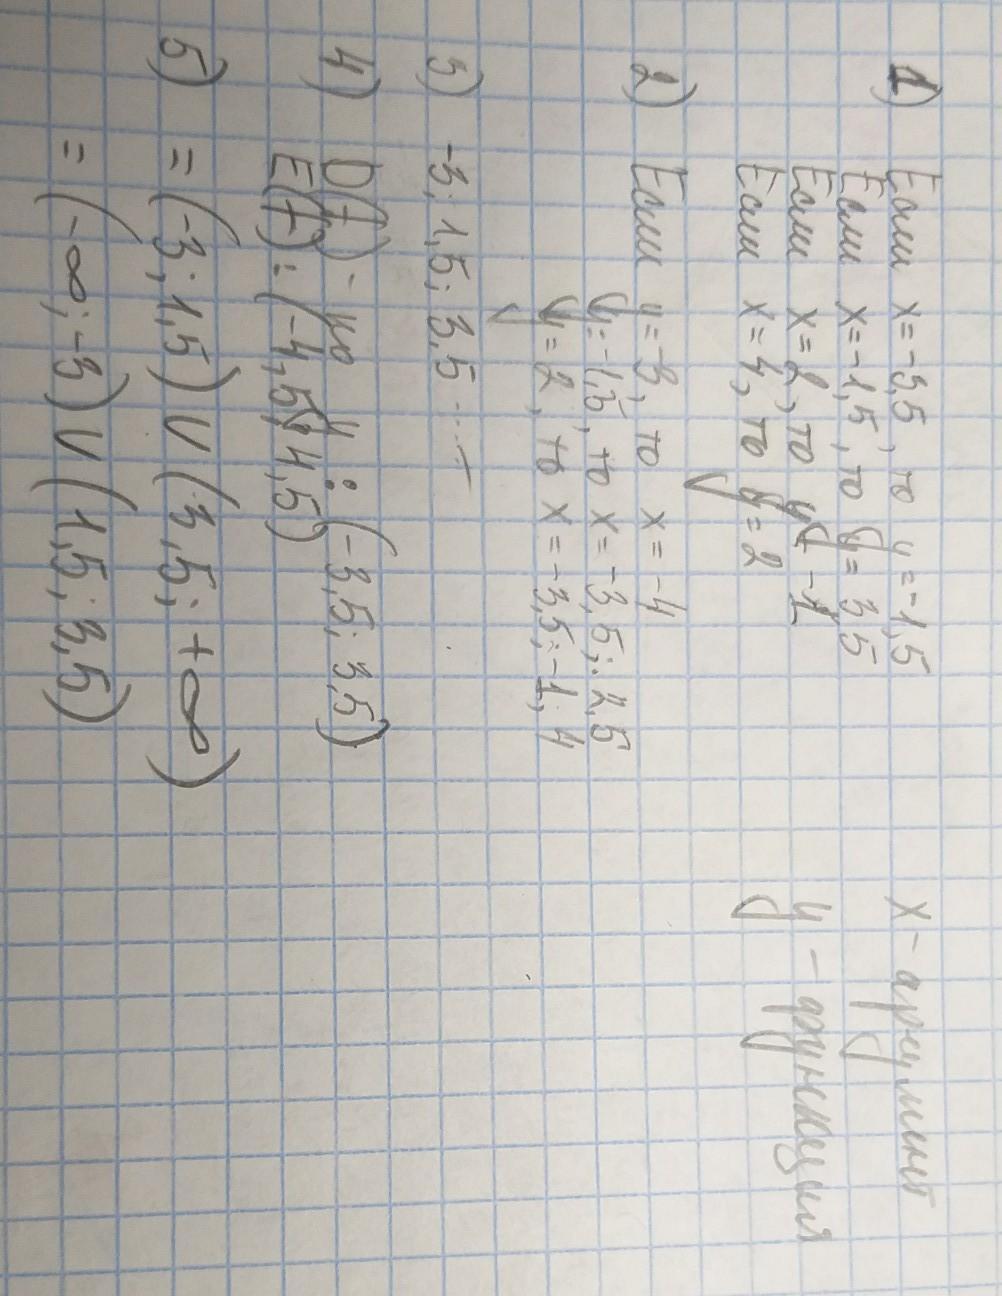 1) Если x = -3,5, то y = -1,5
Если x = -1,5, то y = 3,5
Если x = 2, то y -1
Если x = 4, то y = 2
x - аргумент
y - функция
2) Если y = -3, то x = -4
y = -1,5, то x = -3,5; 2,5
y = 2, то x = -3,5; -1, 4
3) -3; 1,5; 3,5
4) D(f) - : (-3,5; 3,5)
E(f): (-4,5; 4,5)
5) = (-3; 1,5) ∪ (3,5; +∞)
= (-∞; -3) ∪ (1,5; 3,5)